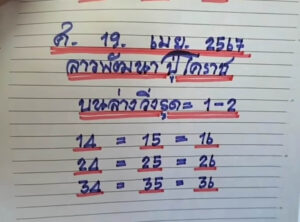 ศ. 19. เมย. 2567
ลาวพัฒนา ปู่โคราช
บนล่างวิ่งรูด = 1-2
14 = 15 = 16
24 = 25 = 26
34 = 35 = 36